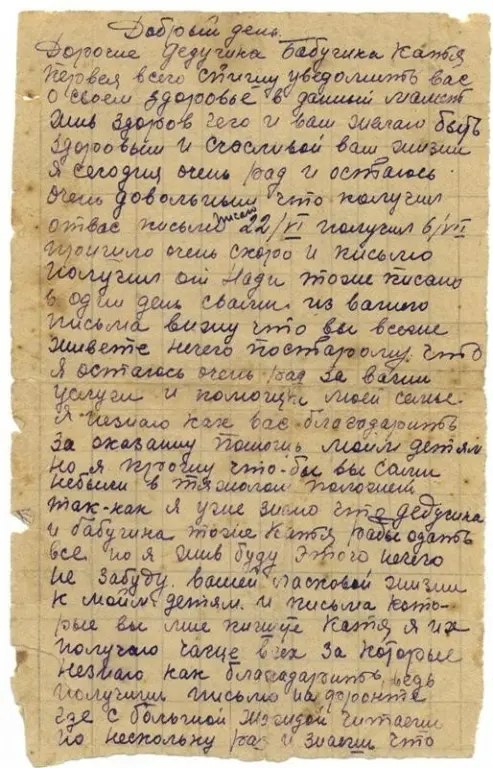 Добрый день
Дорогие Дедучика Бабучика Катя
Первея всего спишу уведомить вас
о своем здоровье в данный мамент
жив здоров чего и вам желаю быть
здоровыми и счасливой вам жизни
Я сегодня очень рад и остаюсь
очень довольным что получил
отвас письмо писано 22/VI получил 6/VII
пришло очень скоро и письмо
получил от Нади тоже писано
в один день свами из вашего
письма вижу что вы все
живете нечего постарому что
я остаюсь очень рад за ваши
услуги и помощи моей семье
Я незнаю как вас благодарить
за оказашу помощь моим детям
но я прошу что-бы вы сами
небыли в тяжолом положении
так-как я уже знаю что дедучика
и бабучика тоже Катя рады одать
все но я жив буду этого нечего
не забуду вашей ласковой жизни
к моим детям и письма кото-
рые вы мне пишите Катя я их
получаю чаще всех за которые
незнаю как благадарить ведь
получиш письмо на фронте
где с большой жаждой читаеш
по нескольку раз и знаеш что